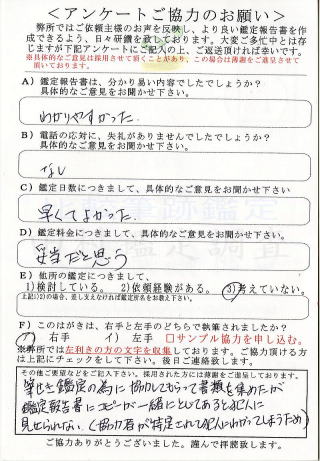 ＜アンケートご協力のお願い＞
弊所ではご依頼主様のお声を反映し、より良い鑑定報告書を作
成できるよう、日々研鑽を致しております。大変ご多忙中とは存
じますが下記アンケートにご記入の上、ご返送頂ければ幸いです。
※具体的なご意見は採用させて頂くことがあり、この場合は薄謝をご進呈させて
頂いております。
A）鑑定報告書は、分かり易い内容でしたでしょうか？
具体的なご意見をお聞かせ下さい。
わかりやすかった.
B）電話の応対に、失礼がありませんでしたでしょうか？
具体的なご意見をお聞かせ下さい。
なし
C）鑑定日数につきまして、具体的なご意見をお聞かせ下さい
早くてよかった.
D）鑑定料金につきまして、具体的なご意見をお聞かせ下さい。
妥当だと思う
E）他所の鑑定につきまして、
1)検討している。 2)依頼経験がある。 3)考えていない。
上記1)2)の場合、差し支えなければ鑑定所名をお教え下さい。
F）このはがきは、右手と左手のどちらで執筆されましたか？
ア）右手 イ）左手 □サンプル協力を申し込む。
※弊所では左利きの方の文字を収集しております。ご協力頂ける方
は上記にチェックをして下さい。後日ご連絡致します。
その他ご要望などをご記入下さい。採用された方には薄謝をご進呈しております。
筆跡鑑定の為に協力してもらって書類を集めたが
鑑定報告書にコピーが一緒にとじてあると犯人に
見せられない（協力者が特定され犯人にわかってしまうため）
ご協力ありがとうございました。謹んで拝読致します。